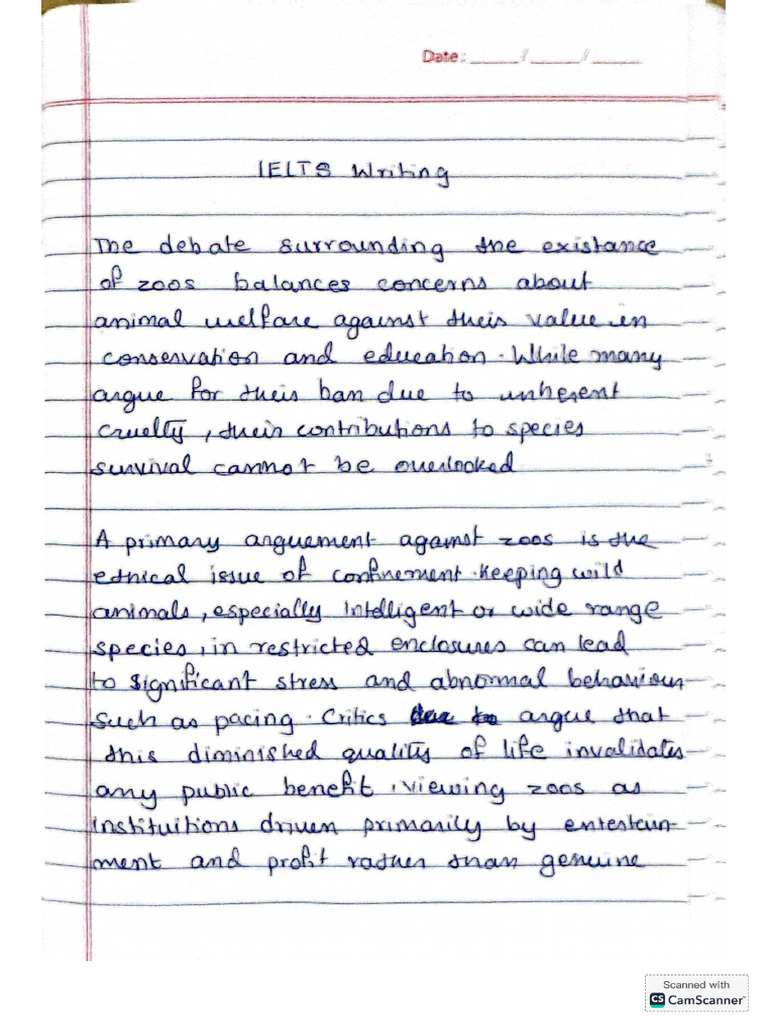 Date: ____/____/____
IELTS Writing
The debate surrounding the existance
of zoos balances concerns about
animal welfare against their value in
conservation and education. While many
argue for their ban due to inherent
cruelty, their contributions to species
survival cannot be overlooked
A primary arguement against zoos is the
ethical issue of confinement. Keeping wild
animals, especially intelligent or wide range
species, in restricted enclosures can lead
to significant stress and abnormal behaviour
such as pacing. Critics argue that
this diminished quality of life invalidates
any public benefit, viewing zoos as
instituitions driven primarily by entertain-
ment and profit rather than genuine
Scanned with
CS CamScanner